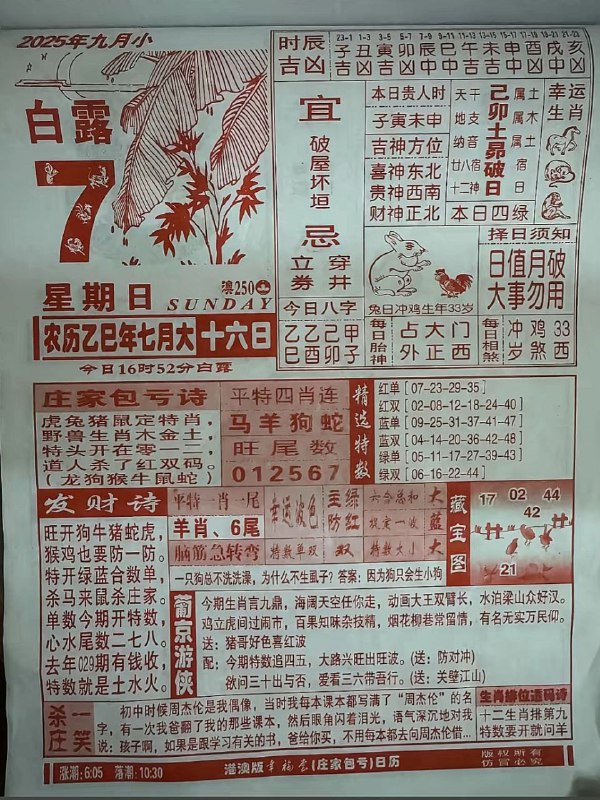 2025年九月小
白露
7
星期日
SUNDAY
澳250
农历乙巳年七月大
十六日
今日16时52分白露
时辰吉凶
23-1 1-3 3-5 5-7 7-9 9-11 11-13 13-15 15-17 17-19 19-21 21-23
子丑寅卯辰巳午未申酉戌亥
吉凶吉中中中吉吉中凶中中
宜
破屋坏垣
忌
立券
穿井
本日贵人时
子寅未申
吉神方位
喜神东北
贵神西南
财神正北
天干 属土
地支 属木
纳音 属土
廿八宿 宿
十二神 日
己卯土昴破日
本日四绿
幸运生肖
兔日冲鸡生年33岁
择日须知
日值月破
大事勿用
今日八字
乙乙己甲
巳酉卯子
每日胎神
占大门
外正西
每日相煞
冲鸡33
岁煞西
庄家包亏诗
虎兔猪鼠定特肖，
野兽生肖木金土，
特头开在零一二，
道人杀了红双码。
（龙狗猴牛鼠蛇）
平特四肖连
马羊狗蛇
旺尾数
012567
精选特数
红单［07-23-29-35］
红双［02-08-12-18-24-40］
蓝单［09-25-31-37-41-47］
蓝双［04-14-20-36-42-48］
绿单［05-11-17-27-39-43］
绿双［06-16-22-44］
发财诗
旺开狗牛猪蛇虎，
猴鸡也要防一防。
特开绿蓝合数单，
杀马来鼠杀庄家。
单数今期开特数，
心水尾数二七八。
去年029期有钱收，
特数就是土水火。
平特一肖一尾
羊肖、6尾
脑筋急转弯
幸运波色
主绿
防红
六合总和 大
特数单双 双
蓝
特数大小 大
一只狗总不洗洗澡，为什么不生虱子？答案：因为狗只会生小狗
藏宝图
17 02 44
42
21
葡京游侠
今期生肖言九鼎，海阔天空任你走，动画大王双臂长，水泊梁山众好汉。
鸡立虎间过闹市，百果知味杂技精，烟花柳巷常留情，有名无实万民仰。
送：猪哥好色喜红波
配：今期特数追四五，大路兴旺出旺波。（送：防对冲）
欲问三十出与否，爱看三六带吾行。（送：关壁江山）
杀庄一笑
初中时候周杰伦是我偶像，当时我每本课本都写满了“周杰伦”的名
字，有一次我爸翻了我的那些课本，然后眼角闪着泪光，语气深沉地对我
说：孩子啊，如果是跟学习有关的书，爸给你买，不用每本都去向周杰伦借...
生肖排位透码诗
十二生肖排第九
特数要开就问羊
涨潮：6:05 落潮：10:30
港澳版幸福堂(庄家包亏)日历
版权所有
仿冒必究